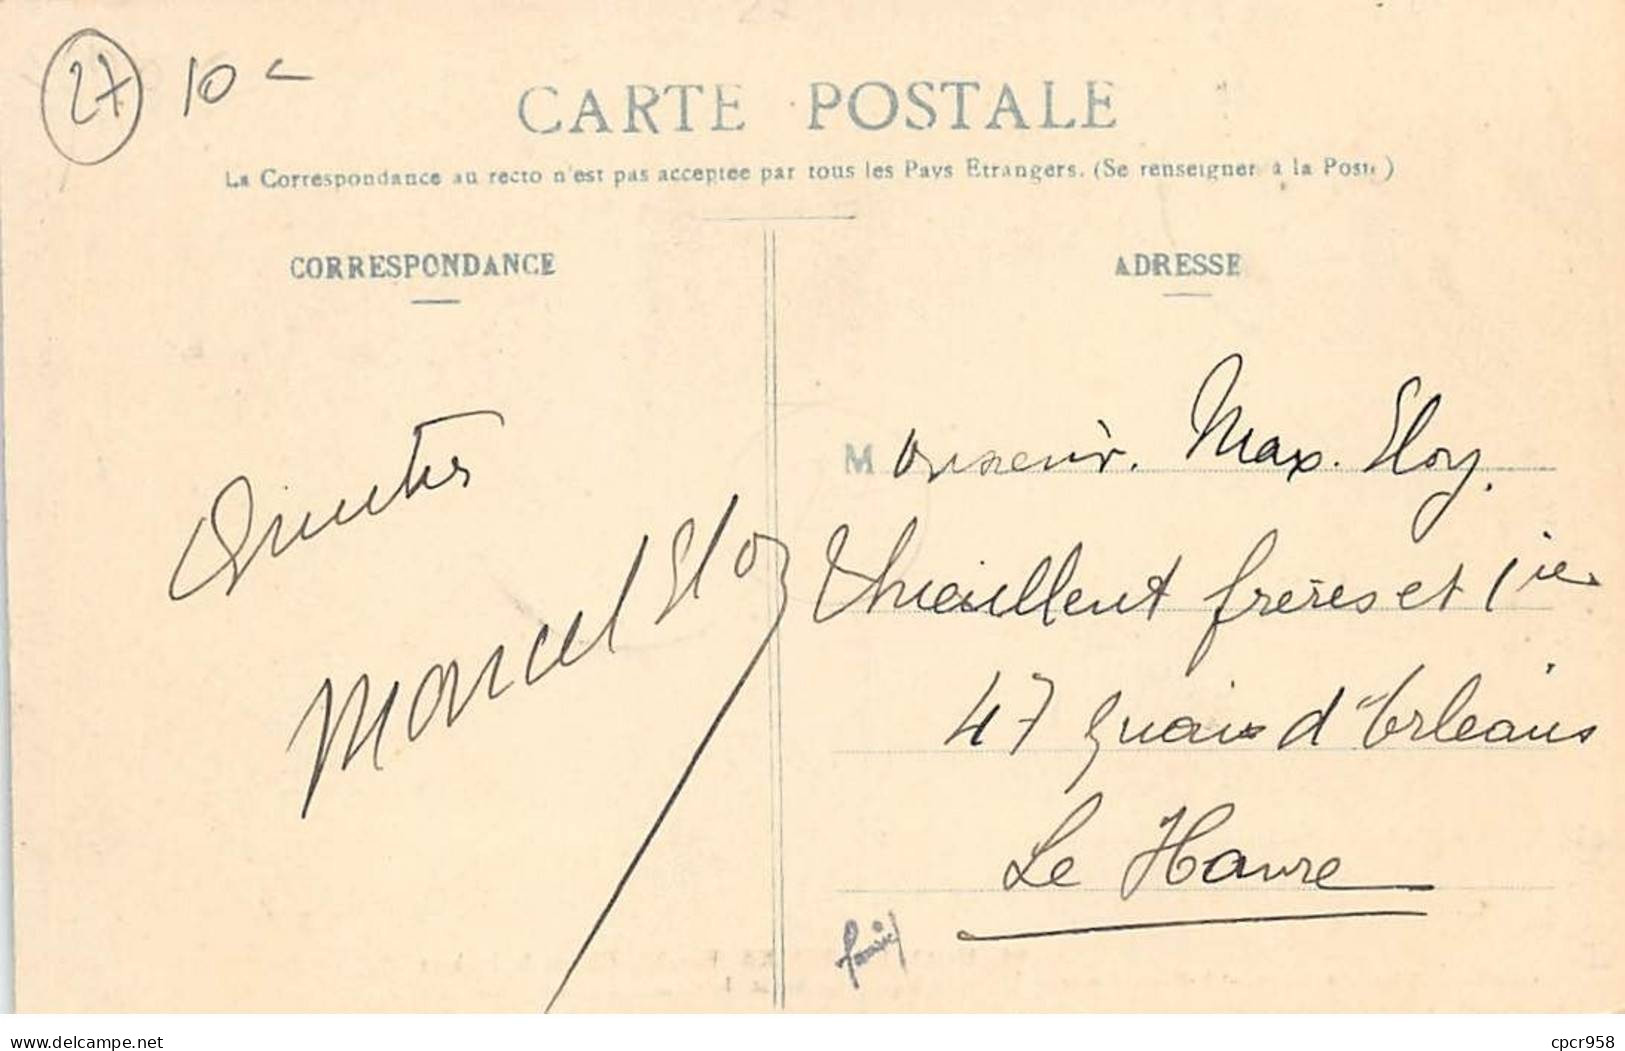 27 10 c
CARTE POSTALE
La Correspondance au recto n'est pas acceptee par tous les Pays Etrangers. (Se renseigner à la Poste)
CORRESPONDANCE
ADRESSE
Marcel Eloy
Monsieur. Max. Eloy.
Thieullent frères et Cie
47 Quais d'Orléans
Le Havre
www.delcampe.net
cpcr958